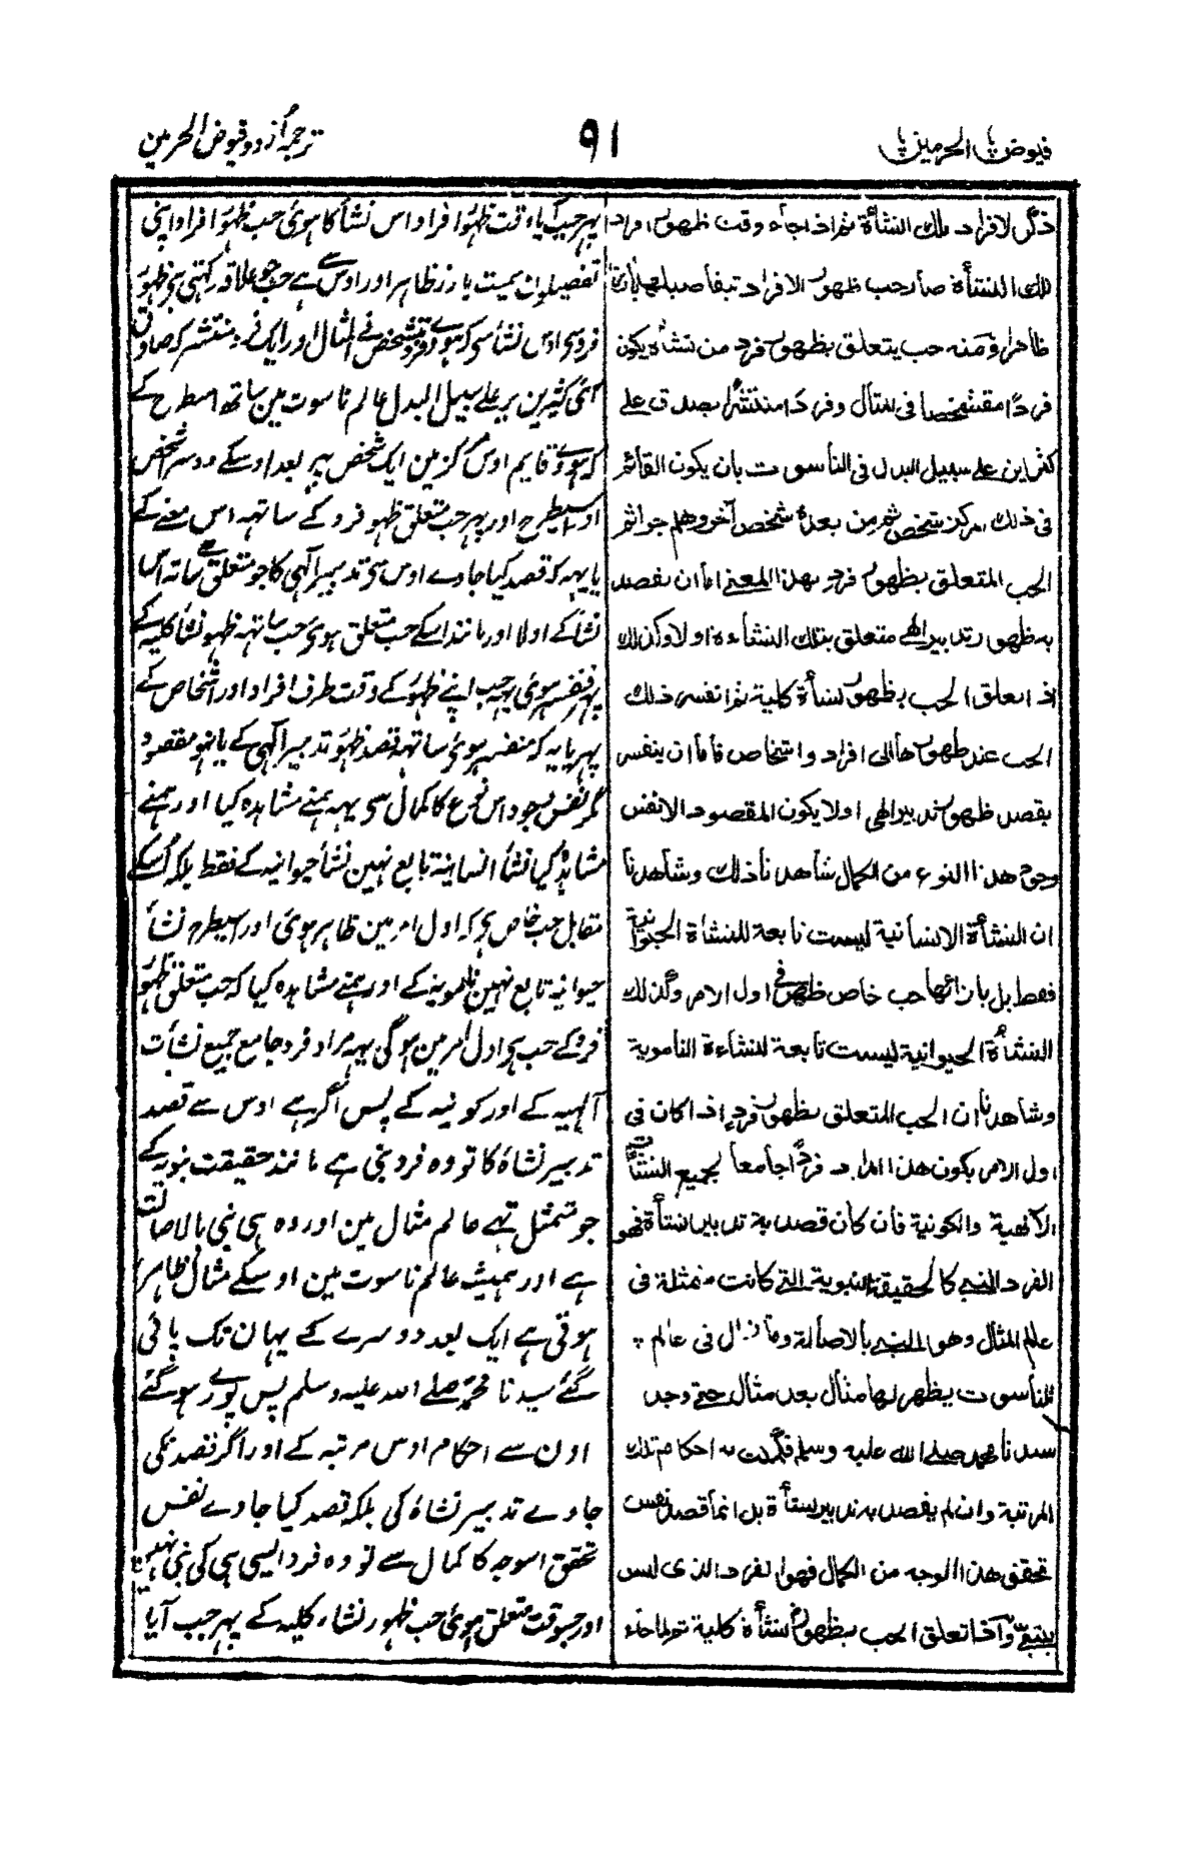 فیوض الحرمین
٩١
ترجمہ اُردو فیوض الحرمین
ذكر لافراد تلك النشأة ثم اذا جاء وقت ظهور افراد
تلك النشأة صار حب ظهور الافراد تبفاصيلها بارزا
ظاهرا ومنه حب يتعلق بظهور فرد من نشأة يكون
فردًا متشخصا فى المثال وفردًا منتشرا يصدق على
كثيرين على سبيل البدل فى الناسوت بان يكون القائم
فى ذلك المركز شخص ثم من بعده شخص آخر وهلم جرا ثم
الحب المتعلق بظهور فرد بهذا المعنى اما ان يقصد
به ظهور تدبير الهى متعلق بتلك النشاءة اولا وكذلك
اذا تعلق الحب بظهور نشأة كلية ثم انفسر ذلك
الحب عند ظهورها الى افراد واشخاص فاما ان ينفسر
بقصد ظهور تدبير الهى اولا يكون المقصود الا نفس
وجود هذا النوع من الكمال شاهدنا ذلك وشاهدنا
ان النشأة الانسانية ليست تابعة للنشأة الحيوانية
فقط بل بازائها حب خاص ظهر فى اول الامر وكذلك
النشأة الحيوانية ليست تابعة للنشاءة الناموية
وشاهدنا ان الحب المتعلق بظهور فرد اذا كان فى
اول الامر يكون هذا المراد فردًا جامعا لجميع النشآت
الآلهية والكونية فان كان قصد به تدبير النشأة فهو
الفرد النبي كالحقيقة النبوية التى كانت متمثلة فى
عالم المثال وهو النبى بالاصالة وما زال فى عالم
الناسوت يظهر لها مثال بعد مثال حتى وجد
سيدنا محمد صلى الله عليه وسلم فكملت به احكام تلك
المرتبة وان لم يقصد به تدبير نشأة بل انما قصد نفس
تحقق هذا الوجه من الكمال فهو الفرد الذى ليس
بنبي واذا تعلق الحب بظهور نشأة كلية ثم اذا جاء
پہر جب آیا وقت ظہور افراد اس نشأ کا ہوئی حب ظہور افراد اپنی
تفصیلون سمیت بارز ظاہر اور اوس سے ہے حب جو علاقہ رکہتی ہی ظہور
فرد سی اوس نشأ سی کہ ہووے فرد متشخص فے المثال اور ایک فرد منتشر کہ صادق
آئی کثیرین پر علے سبیل البدل عالم ناسوت مین ساتھ اسطرح کے
کہ ہووے قایم اوس مرکز مین ایک شخص پہر بعد اوسکے دوسرا شخص
اوسیطرح اور پہر حب متعلق ظہور فرد کے ساتہہ اس معنے کے
یا یہہ کہ قصد کیا جاوے اوس سی تدبیر آلہی کا جو متعلق ہے ساتہ اس
نشأ کے اولا اور مانند اسکے حب متعلق ہوئی حب ساتہہ ظہور نشأ کلیہ کے
پہر منفسر ہوئی یہہ حب اپنے ظہور کے وقت طرف افراد اور اشخاص کے
پہر یا یہ کہ منفسر ہوئی ساتہہ قصد ظہور تدبیر آلہی کے یا نہو مقصود
مگر نفس وجود اس نوع کا کمال سی یہہ ہمنے مشاہدہ کیا اور ہمنے
مشاہدہ کیا نشأ انسانیہ تابع نہین نشأ حیوانیہ کے فقط بلکہ اُسکے
مقابل حب خاص ہی کہ اول امر مین ظاہر ہوئی اور اسیطرح نشأ
حیوانیہ تابع نہین نامویہ کے اور ہمنے مشاہدہ کیا کہ حب متعلق ظہور
فرد کے حب ہی اول امر مین ہوگی یہہ مراد فرد جامع جمیع نشأت
آلہیہ کے اور کونیہ کے پس اگر ہے اوس سے قصد
تدبیر نشاۃ کا تو وہ فرد نبی ہے مانند حقیقت نبویہ کے
جو متمثل تہے عالم مثال مین اور وہ ہی نبی بالاصالت
ہے اور ہمیشہ عالم ناسوت مین اوسکے مثال ظاہر
ہوتی ہے ایک بعد دوسرے کے یہان تک پائی
گئے سیدنا محمد صلے اللہ علیہ وسلم پس پورے ہوگئے
اون سے احکام اوس مرتبہ کے اور اگر قصد نکی
جاوے تدبیر نشاۃ کی بلکہ قصد کیا جاوے نفس
تحقق اسوجہ کا کمال سے تو وہ فرد ایسی ہی کی نبی نہین
اور جسوقت متعلق ہوئی حب ظہور نشاء کلیہ کے پہر جب آیا